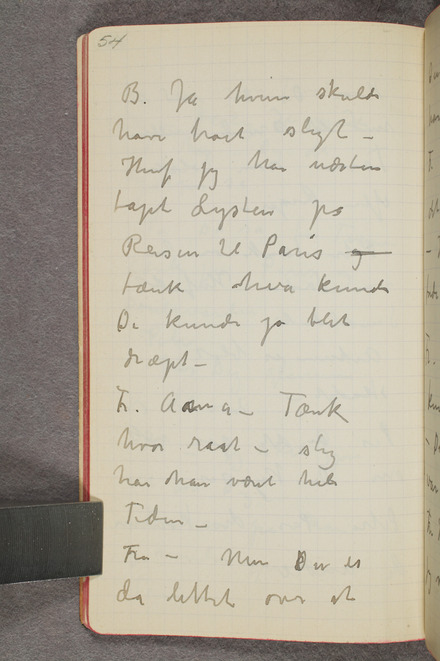 54
B. Ja hvem skulde
have troet sligt –
Huf jeg har næsten
tapt Lysten på
Reisen til Paris og
tænk hva kunde
De kunde jo blet
dræpt –
Fr. Anna – Tænk
hvor rart – slig
har han vært hele
Tiden –
Fru – Men Du er
da lettet over at